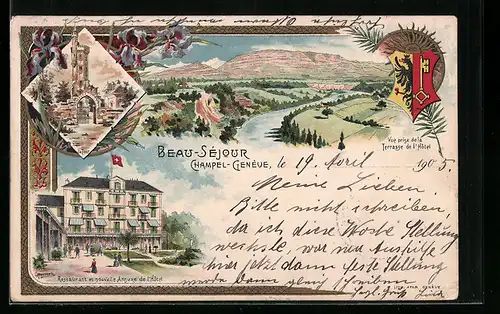 BEAU-SÉJOUR
CHAMPEL-GENÈVE, le 19. April 1905.
Vue prise de la
Terrasse de l'Hôtel
Meine Lieben
Bitte nicht schreiben,
da ich diese Woche Stellung
wechsle, war nur Aushilfe
hier jetzt dann feste Stellung
werde dann gleich schreiben
Restaurant et nouvelle Annexe de l'Hôtel